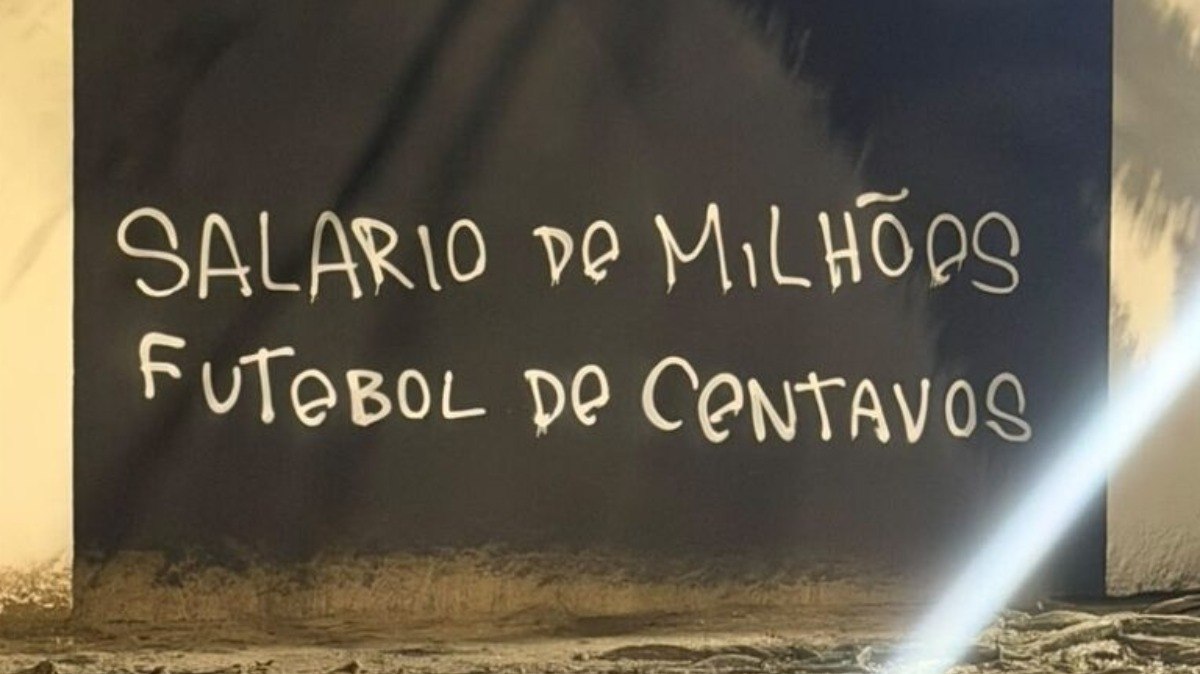 SALARIO DE MILHÕES
FUTEBOL DE CENTAVOS